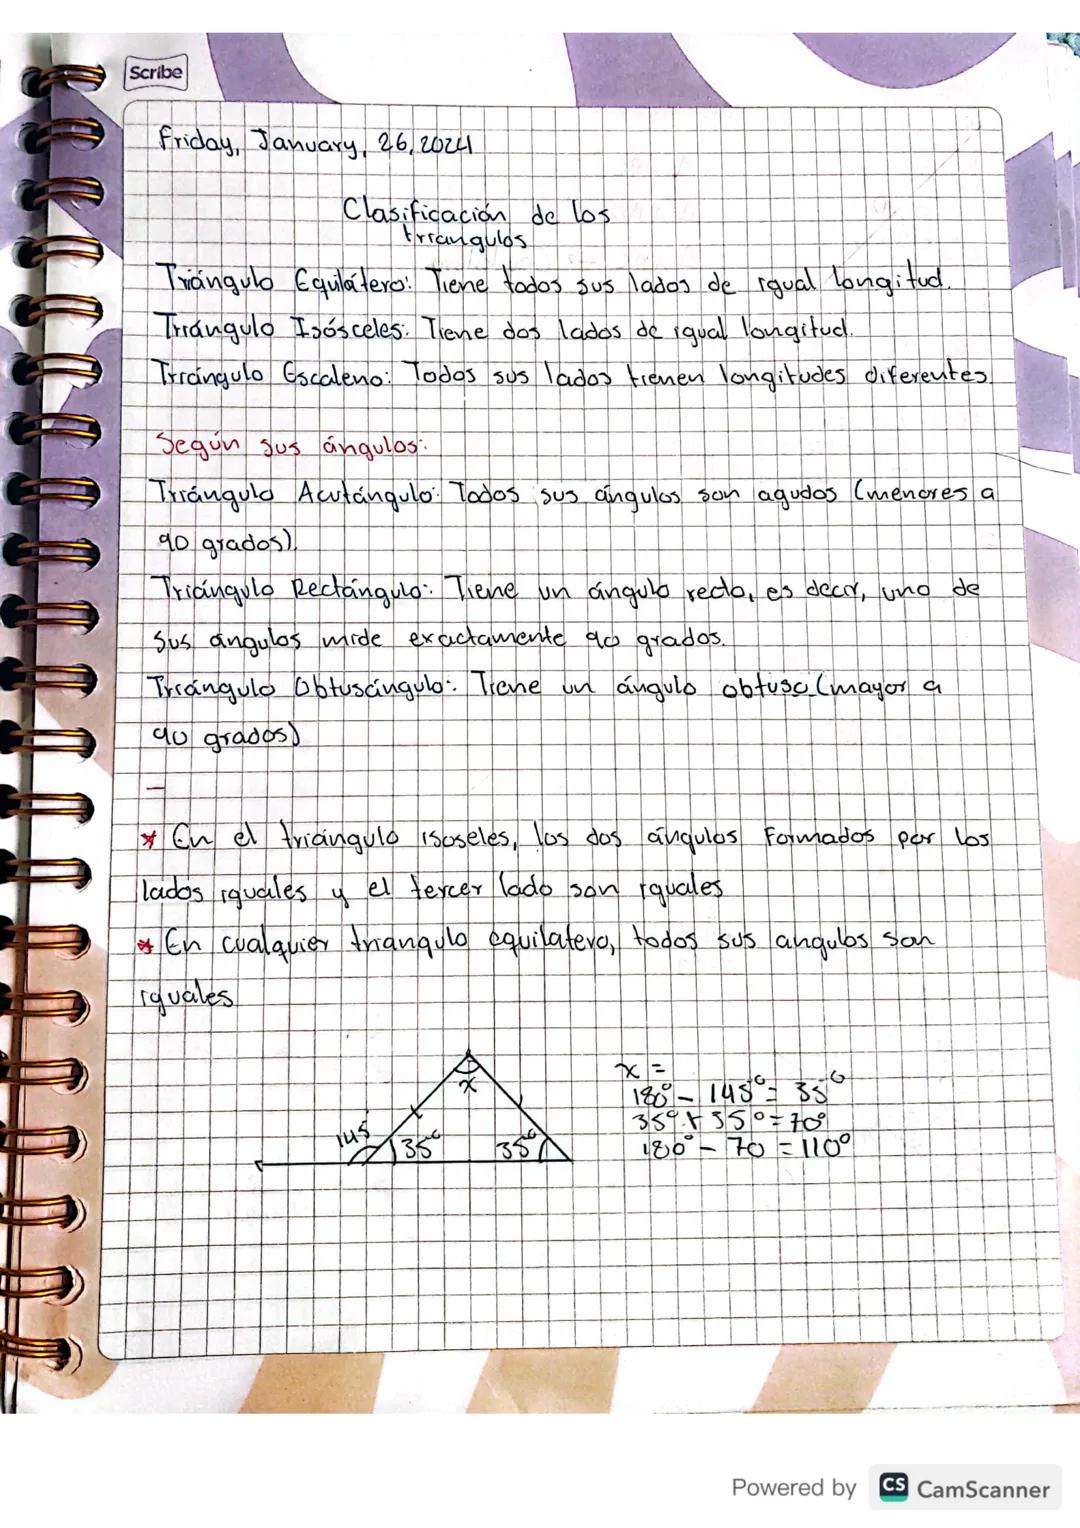 Scribe
Friday, January, 26, 2024
Clasificación de los
triangulos
Triángulo Equilátero: Tiene todos sus lados de igual longitud.
Triángulo Isósceles: Tiene dos lados de igual longitud.
Triángulo Escaleno: Todos sus lados tienen longitudes diferentes
Según sus ángulos:
Triángulo Acutángulo: Todos sus ángulos son agudos (menores a
90 grados).
Triángulo Rectángulo: Tiene un ángulo recto, es decir, uno de
sus ángulos mide exactamente 90 grados.
Triángulo Obtusángulo: Tiene un ángulo obtuso (mayor a
90 grados)
* En el triángulo isoseles, los dos ángulos formados por los
lados iguales y el tercer lado son iguales
* En cualquier triangulo equilatero, todos sus angulos son
iguales
x =
180° - 145° = 35°
35° + 35° = 70°
180° - 70 = 110°
x
145°
35°
35°
Powered by CS CamScanner